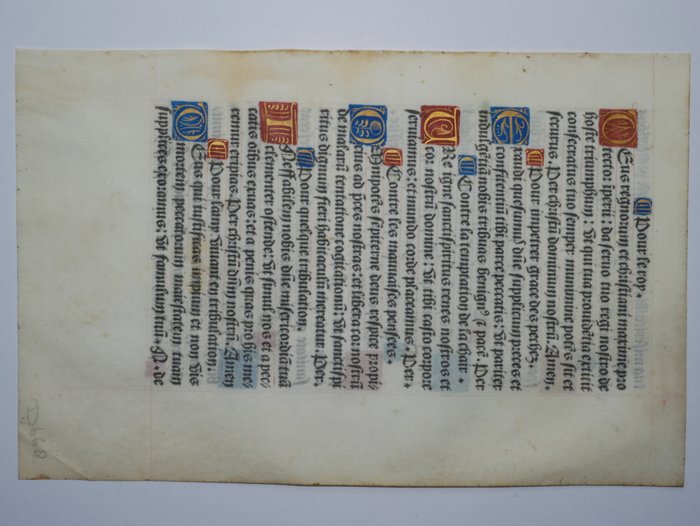 Pour le roy.
Deus regnorum et christiani maxime pro
tector īperii: da seruo tuo regi nostro de
hoste triumphum: Ut qui tua prouidētia extitit
consecratus tuo semper munimine potēs sit et
securus. Per christū dominum nostrū. Amen.
Pour impetrer grace des pechez.
Exaudi quesumꝰ dñe supplicum preces et
confitentiū tibi parce peccatis: Ut pariter
indulgētiā nobis tribuas benignꝰ et pacē. Per
Contre la temptation de la chair.
Ure igne sancti spiritus renes nostros et
cor nostrū domine: Ut tibi casto corpore
seruiamus: et mundo corde placeamus. Per.
Contre les mauuaises pensees.
Omnipotēs sempiterne deus respice propi
cius ad preces nostras et libera cor nostrū
de malarū tentatione cogitationū: Ut sancti spi
ritus dignum fieri habitaculū mereatur. Per.
Pour quelque tribulation.
Ineffabilem nobis dñe misericordiā tuā
clementer ostende: Ut simul nos et a pec
catis oībus exuas: et a penis quas pro his me
remur eripias. Per christū dñm nostrū. Amen
Pour lamy viuant en tribulation.
Deus qui iustificas impium et non vis
mortem peccatorum maiestatem tuam
suppliciter exoramus: Ut famulum tuū .N. de